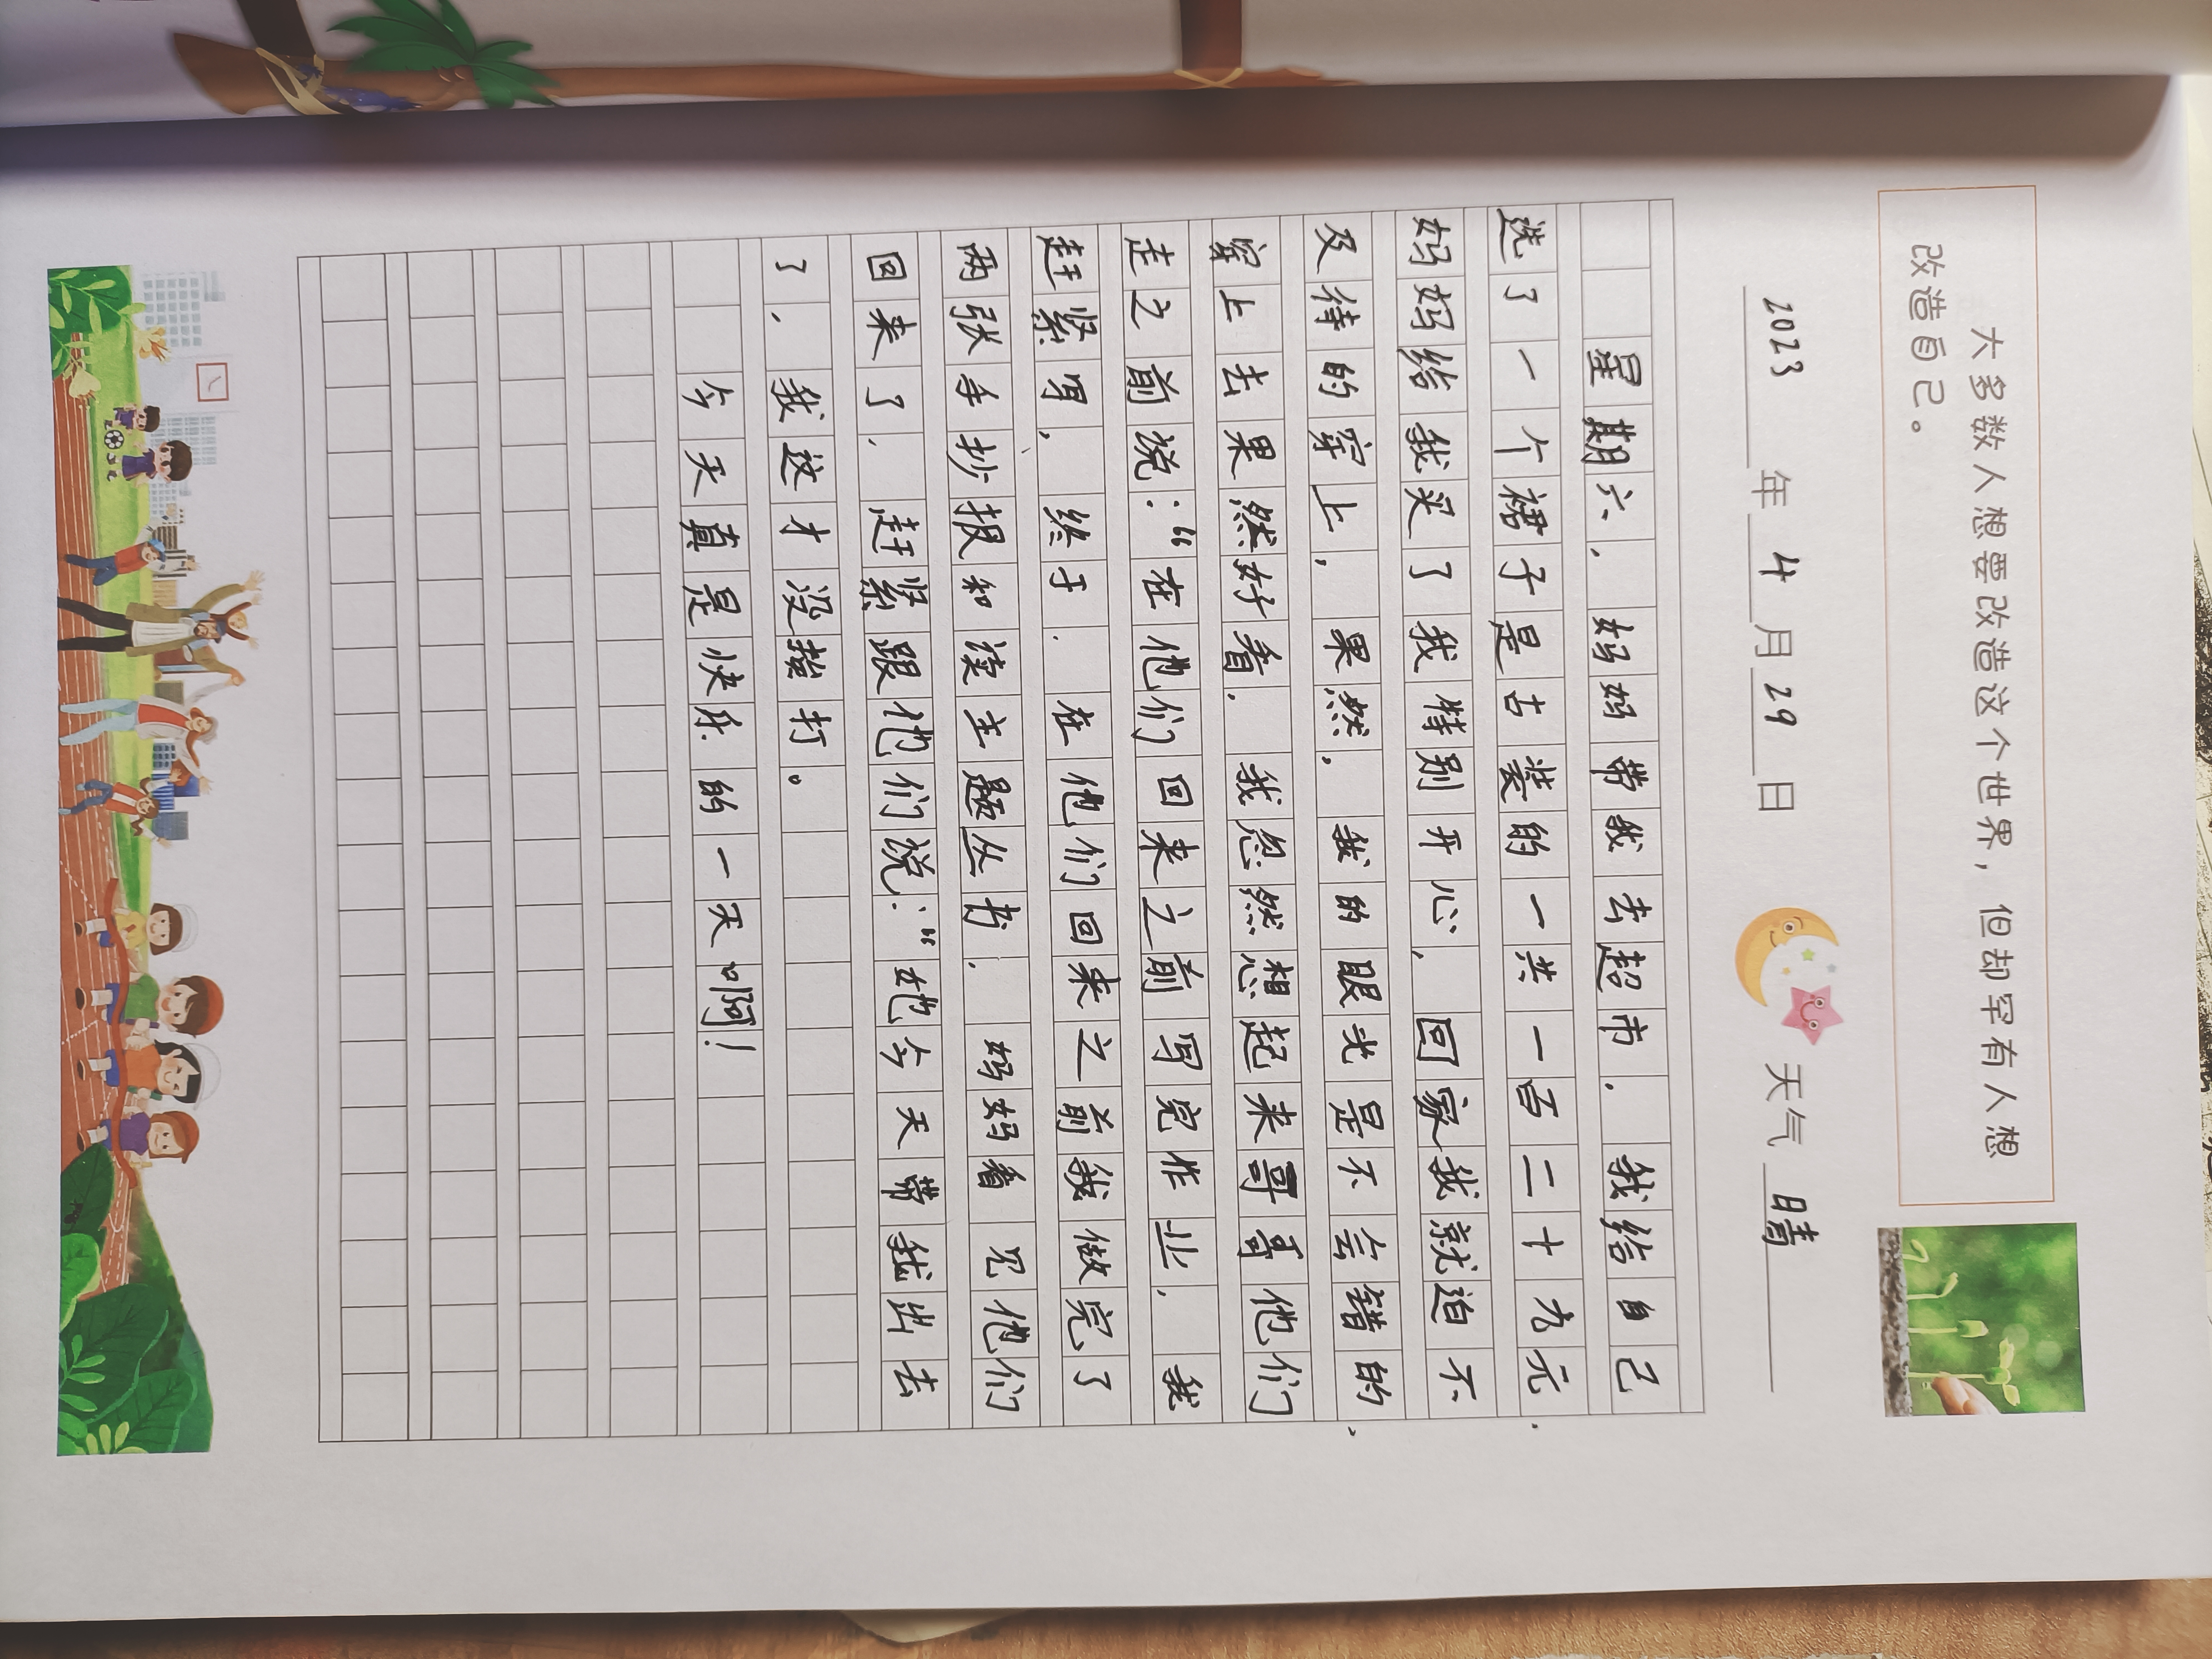 大多数人想要改造这个世界，但却罕有人想
改造自己。
2023年4月29日 天气 晴
星期六，妈妈带我去超市，我给自己
选了一个裙子是古装的一共一百二十九元，
妈妈给我买了我特别开心，回家我就迫不
及待的穿上，果然，我的眼光是不会错的，
穿上去果然好看，我忽然想起来哥哥他们
走之前说：“在他们回来之前写完作业，我
赶紧写，终于，在他们回来之前我做完了
两张手抄报和读主题丛书，妈妈看见他们
回来了，赶紧跟他们说：“她今天带我出去
了，我这才没挨打。
今天真是快乐的一天啊！